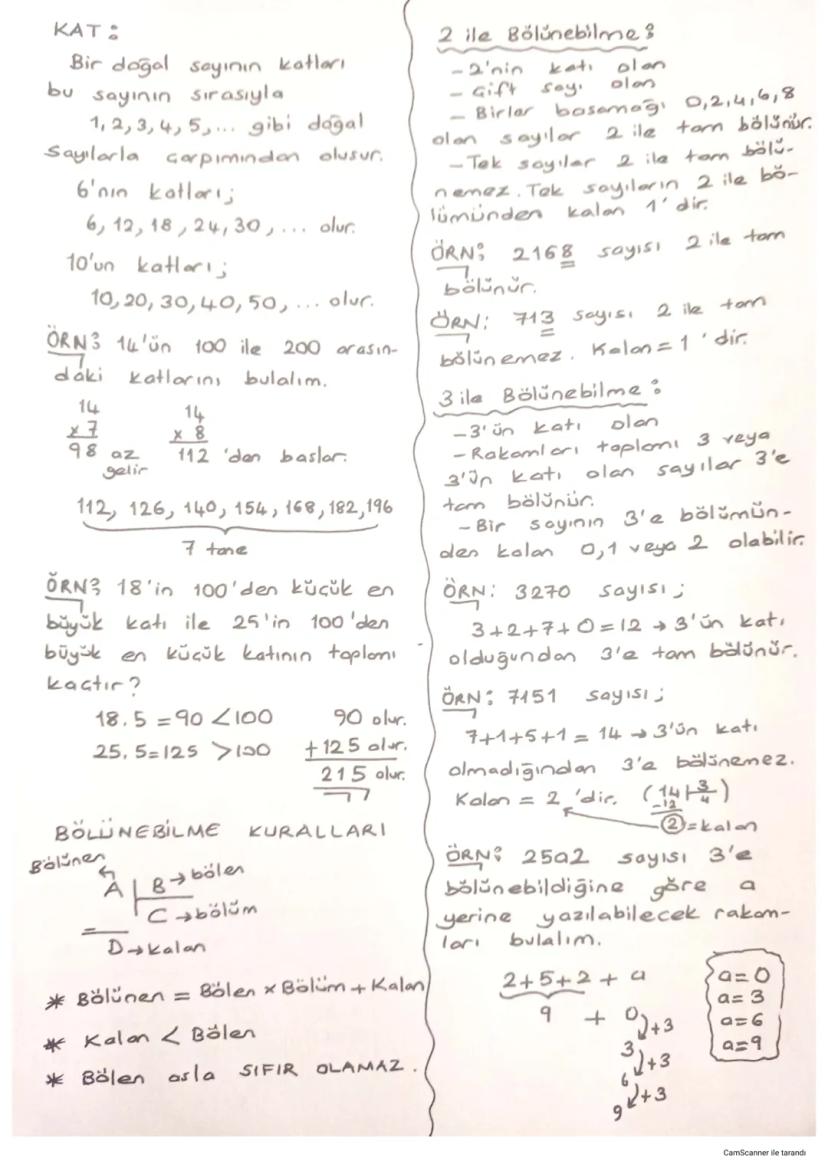 KAT :
Bir doğal sayının katları
bu sayının sırasıyla
1, 2, 3, 4, 5, ... gibi doğal
sayılarla çarpımından oluşur.
6'nın katları;
6, 12, 18, 24, 30, ... olur.
10'un katları;
10, 20, 30, 40, 50, ... olur.
ÖRN: 14'ün 100 ile 200 arasın-
daki katlarını bulalım.
14 14
x 7 x 8
98 az 112 'den başlar.
gelir
112, 126, 140, 154, 168, 182, 196
7 tane
ÖRN: 18'in 100'den küçük en
büyük katı ile 25'in 100'den
büyük en küçük katının toplamı
kaçtır?
18.5 = 90 < 100 90 olur.
25.5 = 125 > 100 + 125 olur.
215 olur.
BÖLÜNEBİLME KURALLARI
Bölünen
A B → bölen
C → bölüm
D → kalan
* Bölünen = Bölen x Bölüm + Kalan
* Kalan < Bölen
* Bölen asla SIFIR OLAMAZ.
2 ile Bölünebilme :
- 2'nin katı olan
- Çift sayı olan
- Birler basamağı 0,2,4,6,8
olan sayılar 2 ile tam bölünür.
- Tek sayılar 2 ile tam bölü-
nemez. Tek sayıların 2 ile bö-
lümünden kalan 1'dir.
ÖRN: 2168 sayısı 2 ile tam
bölünür.
ÖRN: 713 sayısı 2 ile tam
bölünemez. Kalan = 1 'dir.
3 ile Bölünebilme :
- 3'ün katı olan
- Rakamları toplamı 3 veya
3'ün katı olan sayılar 3'e
tam bölünür.
- Bir sayının 3'e bölümün-
den kalan 0,1 veya 2 olabilir.
ÖRN: 3270 sayısı;
3+2+7+0=12 → 3'ün katı
olduğundan 3'e tam bölünür.
ÖRN: 7151 sayısı;
7+1+5+1 = 14 → 3'ün katı
olmadığından 3'e bölünemez.
Kalan = 2 'dir. (14 3
-12 4)
2 = kalan
ÖRN: 25a2 sayısı 3'e
bölünebildiğine göre a
yerine yazılabilecek rakam-
ları bulalım.
2+5+2 + a
9 + 0
+3
3
+3
6
+3
9
a=0
a=3
a=6
a=9
CamScanner ile tarandı